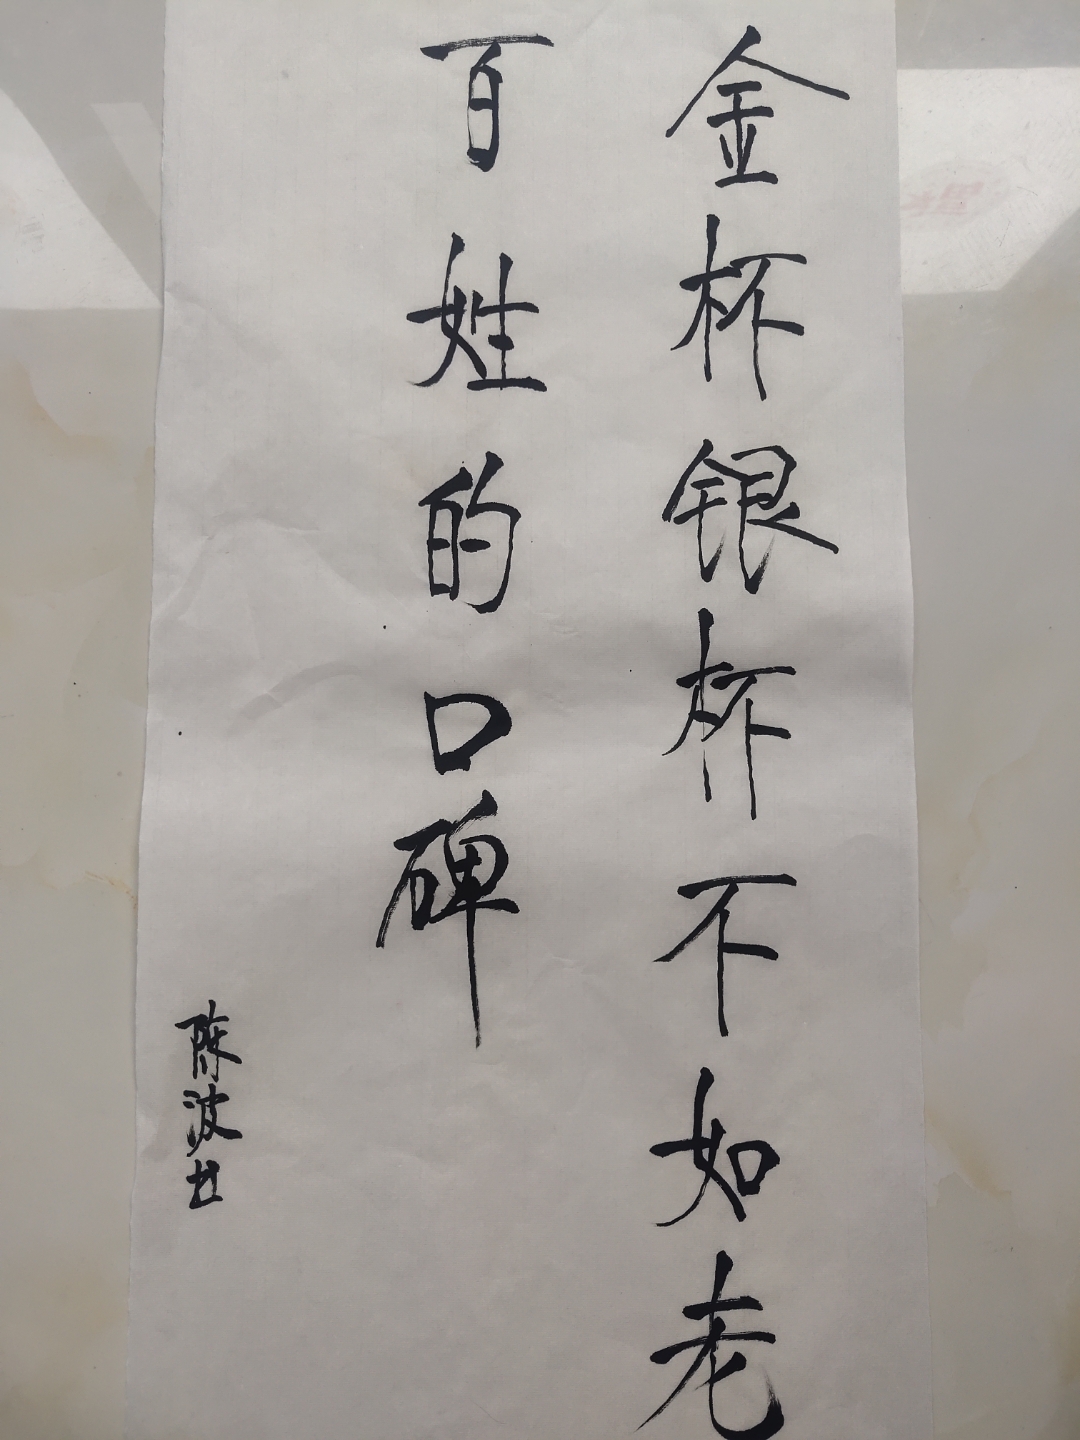 金杯银杯不如老
百姓的口碑
陈波书